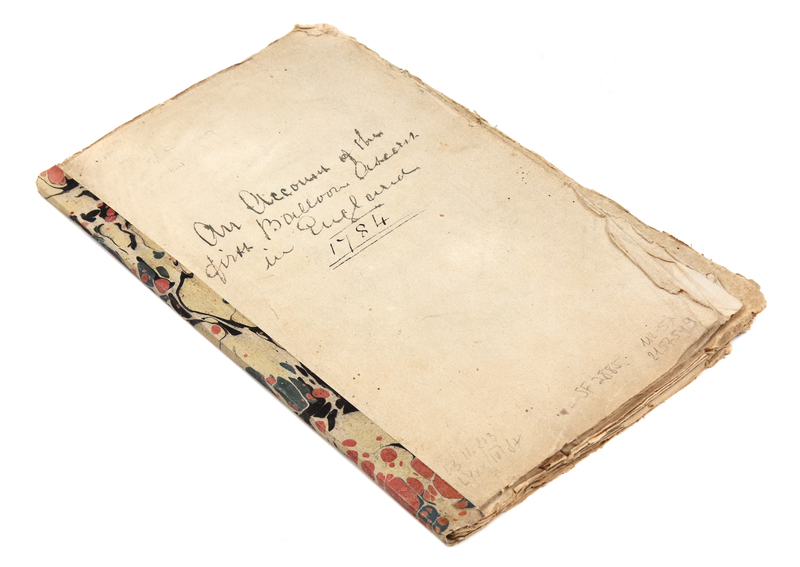 An Account of the
first Balloon Ascent
in England
1784
SF 2885